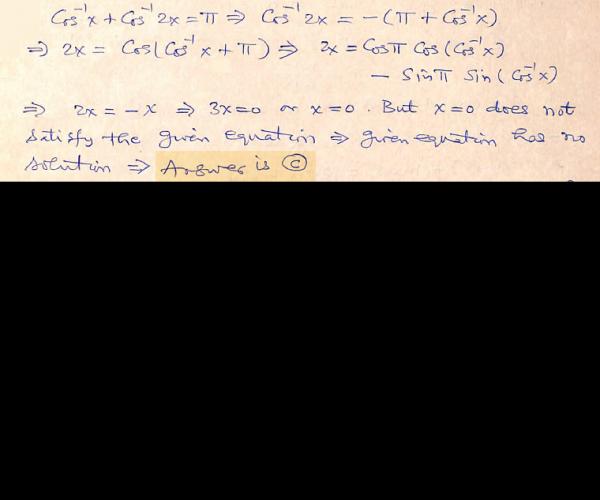 Cos⁻¹x + Cos⁻¹2x = π ⇒ Cos⁻¹2x = -(π + Cos⁻¹x)
⇒ 2x = Cos(Cos⁻¹x + π) ⇒ 2x = Cosπ Cos(Cos⁻¹x)
- Sinπ Sin(Cos⁻¹x)
⇒ 2x = -x ⇒ 3x=0 or x=0. But x=0 does not
satisfy the given equation ⇒ given equation has no
solution ⇒ Answer is Ⓒ